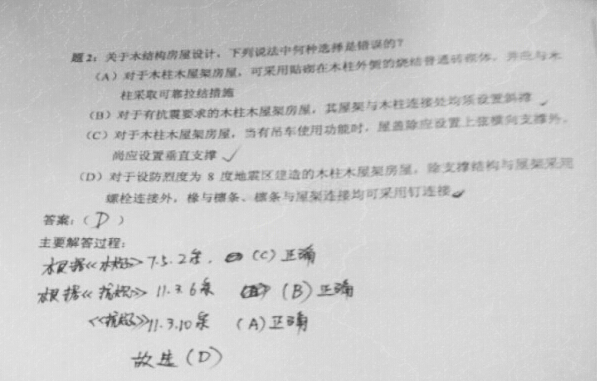 题2：关于木结构房屋设计，下列说法中何种选择是错误的？
（A）对于木柱木屋架房屋，可采用贴砌在木柱外侧的烧结普通砖砌体，并应与木
柱采取可靠拉结措施
（B）对于有抗震要求的木柱木屋架房屋，其屋架与木柱连接处均须设置斜撑
（C）对于木柱木屋架房屋，当有吊车使用功能时，屋盖除应设置上弦横向支撑外，
尚应设置垂直支撑
（D）对于设防烈度为 8 度地震区建造的木柱木屋架房屋，除支撑结构与屋架采用
螺栓连接外，椽与檩条、檩条与屋架连接均可采用钉连接
答案：（D）
主要解答过程：
根据《木规》7.5.2条，（C）正确
根据《抗规》11.3.6条 （B）正确
《抗规》11.3.10条 （A）正确
故选（D）